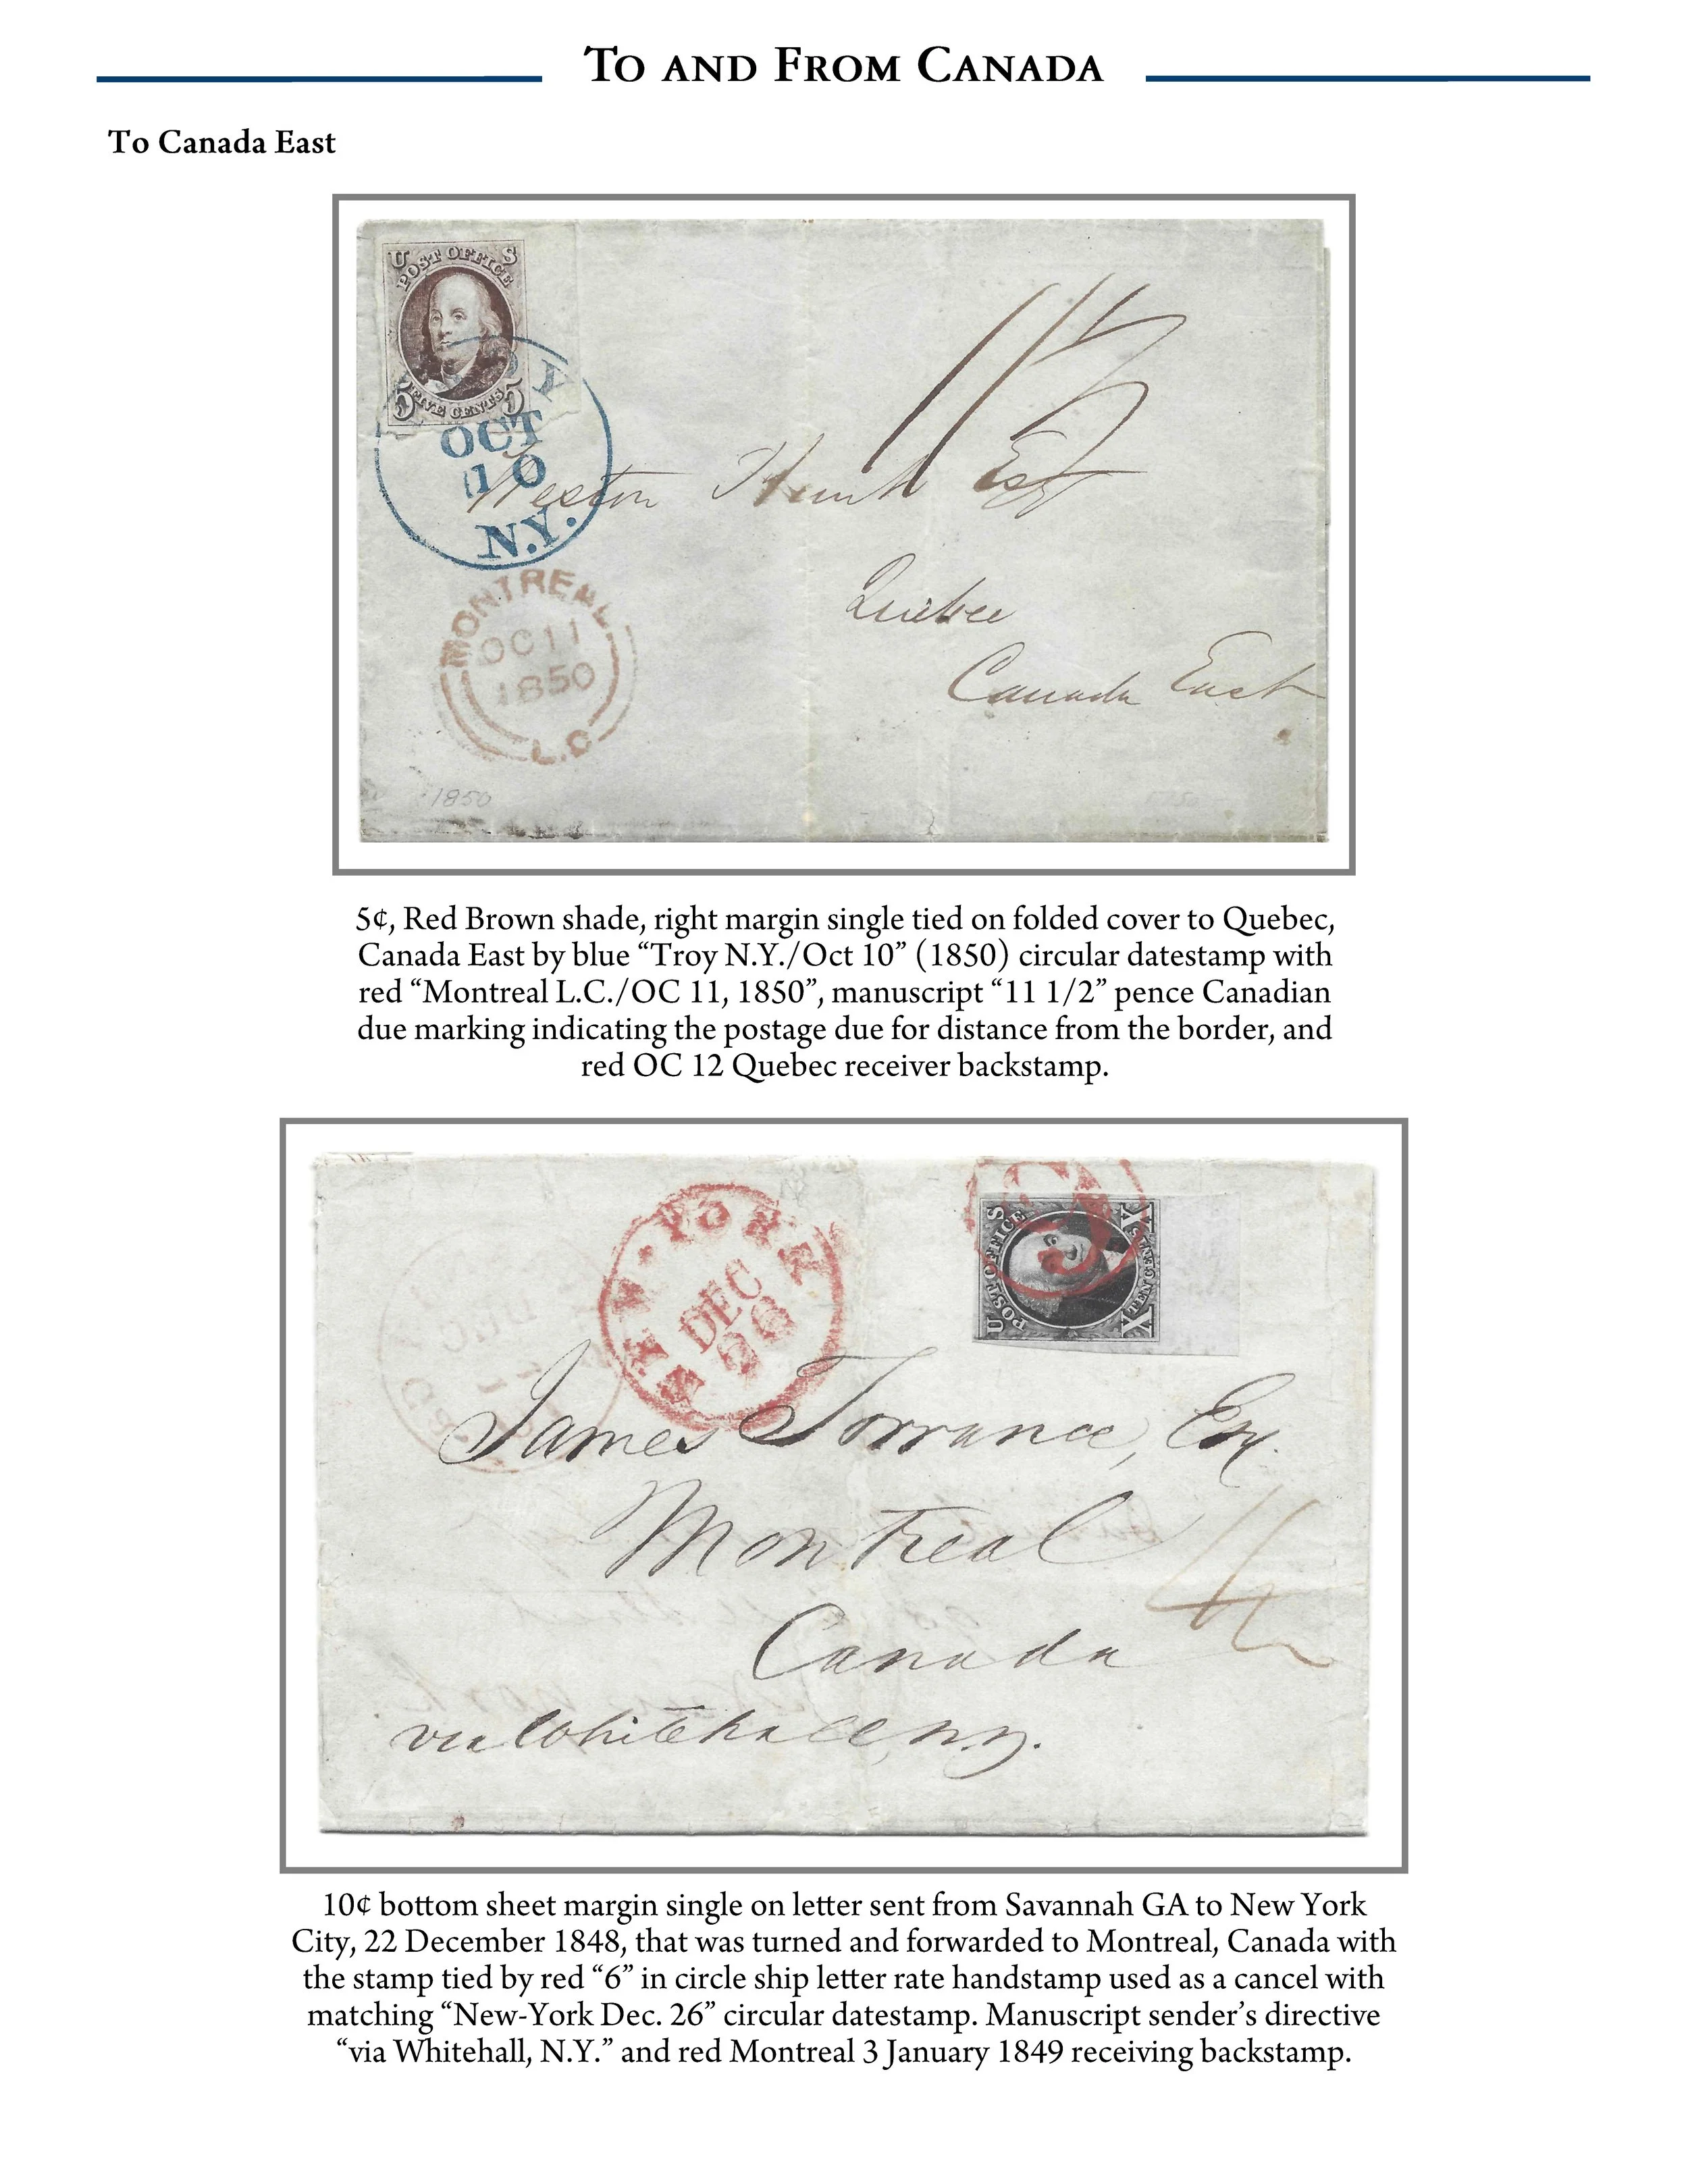 To and From Canada
To Canada East
U S
POST OFFICE
5 FIVE CENTS 5
11 1/2
OCT
10
N.Y.
Weston Hunt Esqr
Quebec
Canada East
MONTREAL
OC 11
1850
L.C
1850
5¢, Red Brown shade, right margin single tied on folded cover to Quebec,
Canada East by blue “Troy N.Y./Oct 10” (1850) circular datestamp with
red “Montreal L.C./OC 11, 1850”, manuscript “11 1/2” pence Canadian
due marking indicating the postage due for distance from the border, and
red OC 12 Quebec receiver backstamp.
NEW-YORK
DEC
26
6
U S
POST OFFICE
X TEN CENTS X
James Torrance, Esq.
Montreal
Canada
via Whitehall, N.Y.
10¢ bottom sheet margin single on letter sent from Savannah GA to New York
City, 22 December 1848, that was turned and forwarded to Montreal, Canada with
the stamp tied by red “6” in circle ship letter rate handstamp used as a cancel with
matching “New-York Dec. 26” circular datestamp. Manuscript sender’s directive
“via Whitehall, N.Y.” and red Montreal 3 January 1849 receiving backstamp.